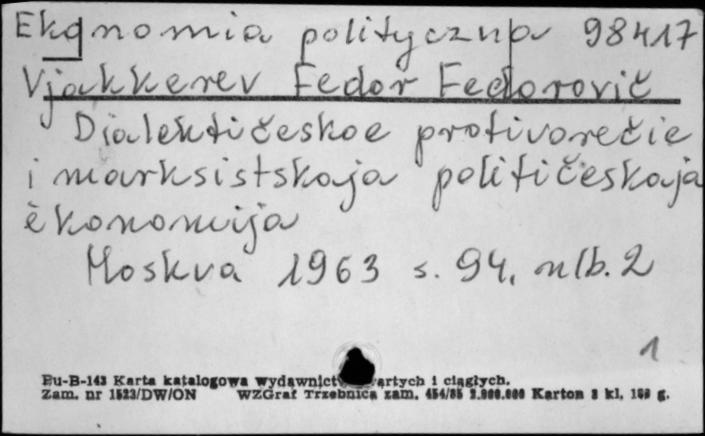 Ekonomia polityczna 98417
Vjakkerev Fedor Fedorovič
Dialektičeskoe protivorečie
i marksistskaja političeskaja
èkonomija
Moskva 1963 s. 94, nlb. 2
1
Pu-B-143 Karta katalogowa wydawnictw zwartych i ciągłych.
Zam. nr 1523/DW/ON WZGraf Trzebnica zam. 454/85 2.000.000 Karton 3 kl. g.